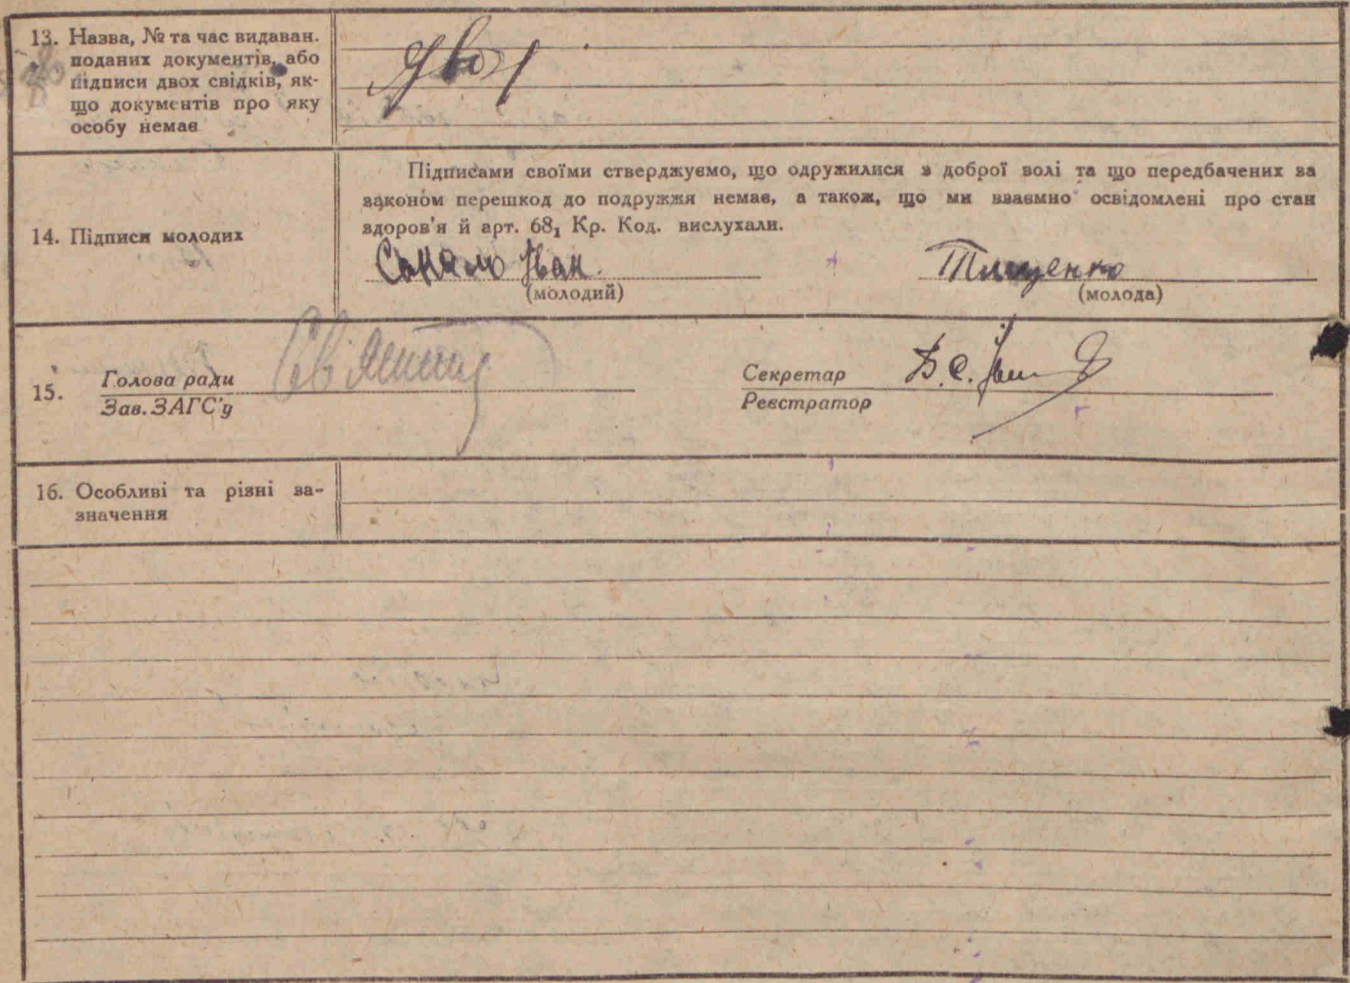 13. Назва, № та час видаван.
поданих документів, або
підписи двох свідків, як-
що документів про яку
особу немає
14. Підписи молодих
Підписами своїми стверджуємо, що одружилися з доброї волі та що передбачених за
законом перешкод до подружжя немає, а також, що ми взаємно освідомлені про стан
здоров'я й арт. 68₁ Кр. Код. вислухали.
Іван. Тищенко
(молодий) (молода)
15. Голова ради Секретар
Зав. ЗАГС'у Реєстратор
16. Особливі та різні за-
значення